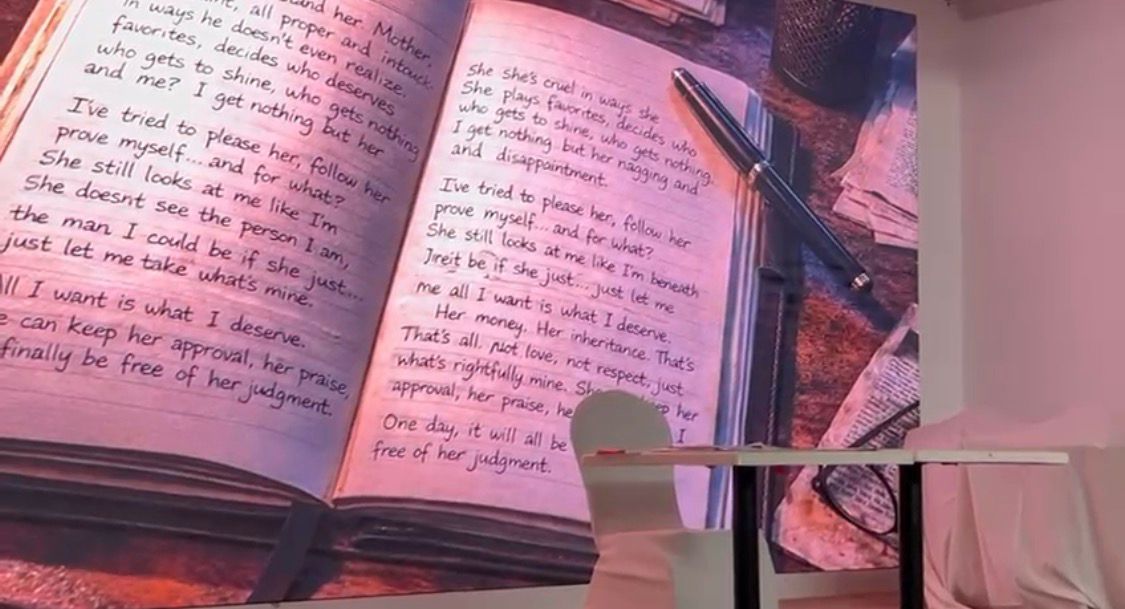 and her. Mother.
all proper and
in ways he doesn't even realize.
favorites, decides who deserves
who gets to shine, who gets nothing
and me? I get nothing but her
I've tried to please her, follow her
prove myself... and for what?
She still looks at me like I'm
She doesnt see the person I am,
the man I could be if she just...
just let me take what's mine.
All I want is what I deserve.
can keep her approval, her praise,
finally be free of her judgment.
She she's cruel in ways she
She plays favorites, decides who
who gets to shine, who gets nothing.
I get nothing but her nagging and
and disappointment.
I've tried to please her, follow her
prove myself... and for what?
She still looks at me like I'm beneath
Jreit be if she just... just let me
me all I want is what I deserve.
Her money. Her inheritance. That's
That's all. Not love, not respect, just
what's rightfully mine. her
approval, her praise,
One day, it will all be I
free of her judgment.